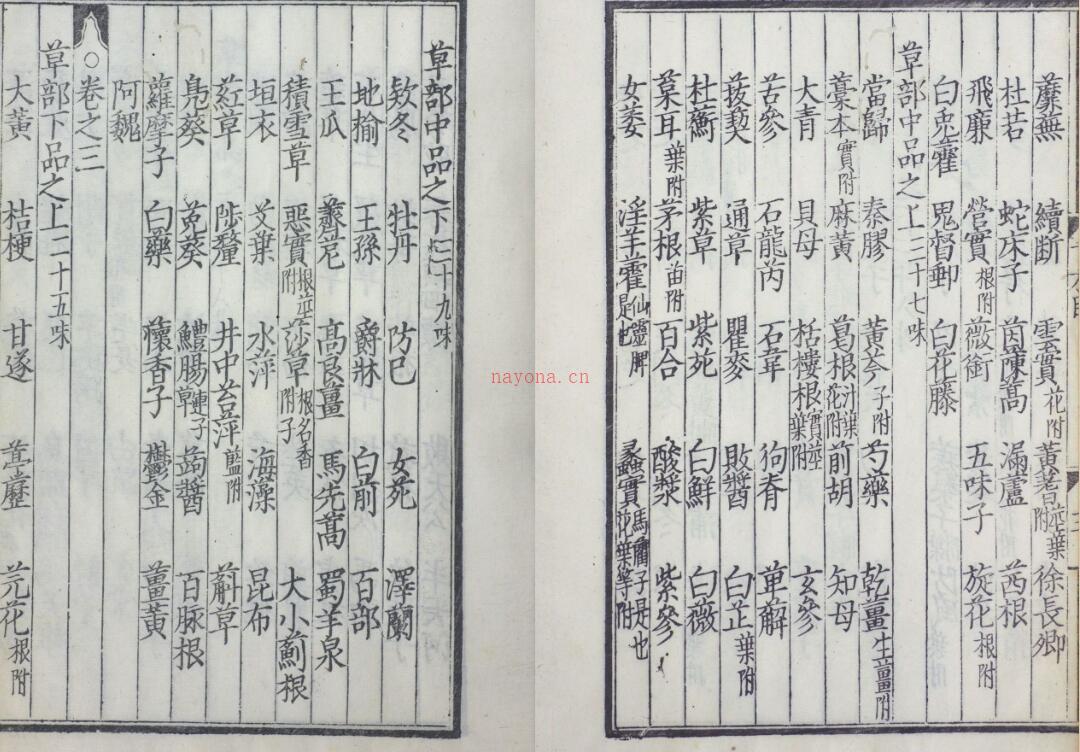 蘼蕪 續斷 雲實花附 黃耆莖葉附 徐長卿
杜若 蛇床子 茵蔯蒿 漏蘆 茜根
飛廉 營實根附 薇銜 五味子 旋花根附
白兎藿 鬼督郵 白花藤
草部中品之上三十七味
當歸 秦膠 黃芩子附 芍藥 乾薑生薑附
藁本實附 麻黃 葛根汁葉花附 前胡 知母
大青 貝母 栝樓根實莖葉附 玄參
苦參 石龍芮 石韋 狗脊 萆薢
菝葜 通草 瞿麥 敗醬 白芷葉附
杜蘅 紫草 紫菀 白鮮 白薇
菜耳葉附 茅根苗附 百合 酸漿 紫參
女萎 淫羊藿仙靈脾是也 蠡實馬藺子是也花葉等附
草部中品之下三十九味
欵冬 牡丹 防巳 女菀 澤蘭
地榆 王孫 爵牀 白前 百部
王瓜 薺苨 高良薑 馬先蒿 蜀羊泉
積雪草 惡實根莖附 莎草根名香附子 大小薊根
垣衣 艾葉 水萍 海藻 昆布
葒草 陟釐 井中苔萍藍附 蔛草
鳧葵 菟葵 鱧腸旱蓮子草 蒟醬 百脉根
蘿摩子 白藥 懷香子 鬱金 薑黃
阿魏
卷之三
草部下品之上二十五味
大黃 桔梗 甘遂 葶藶 芫花根附
nayona.cn